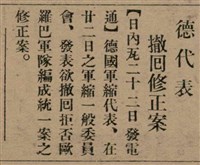 德代表
撤回修正案
【日內瓦二十二日發電
通】德國軍縮代表、在
廿二日之軍縮一般委員
會、發表欲撤回拒否歐
羅巴軍隊編成統一案之
修正案。